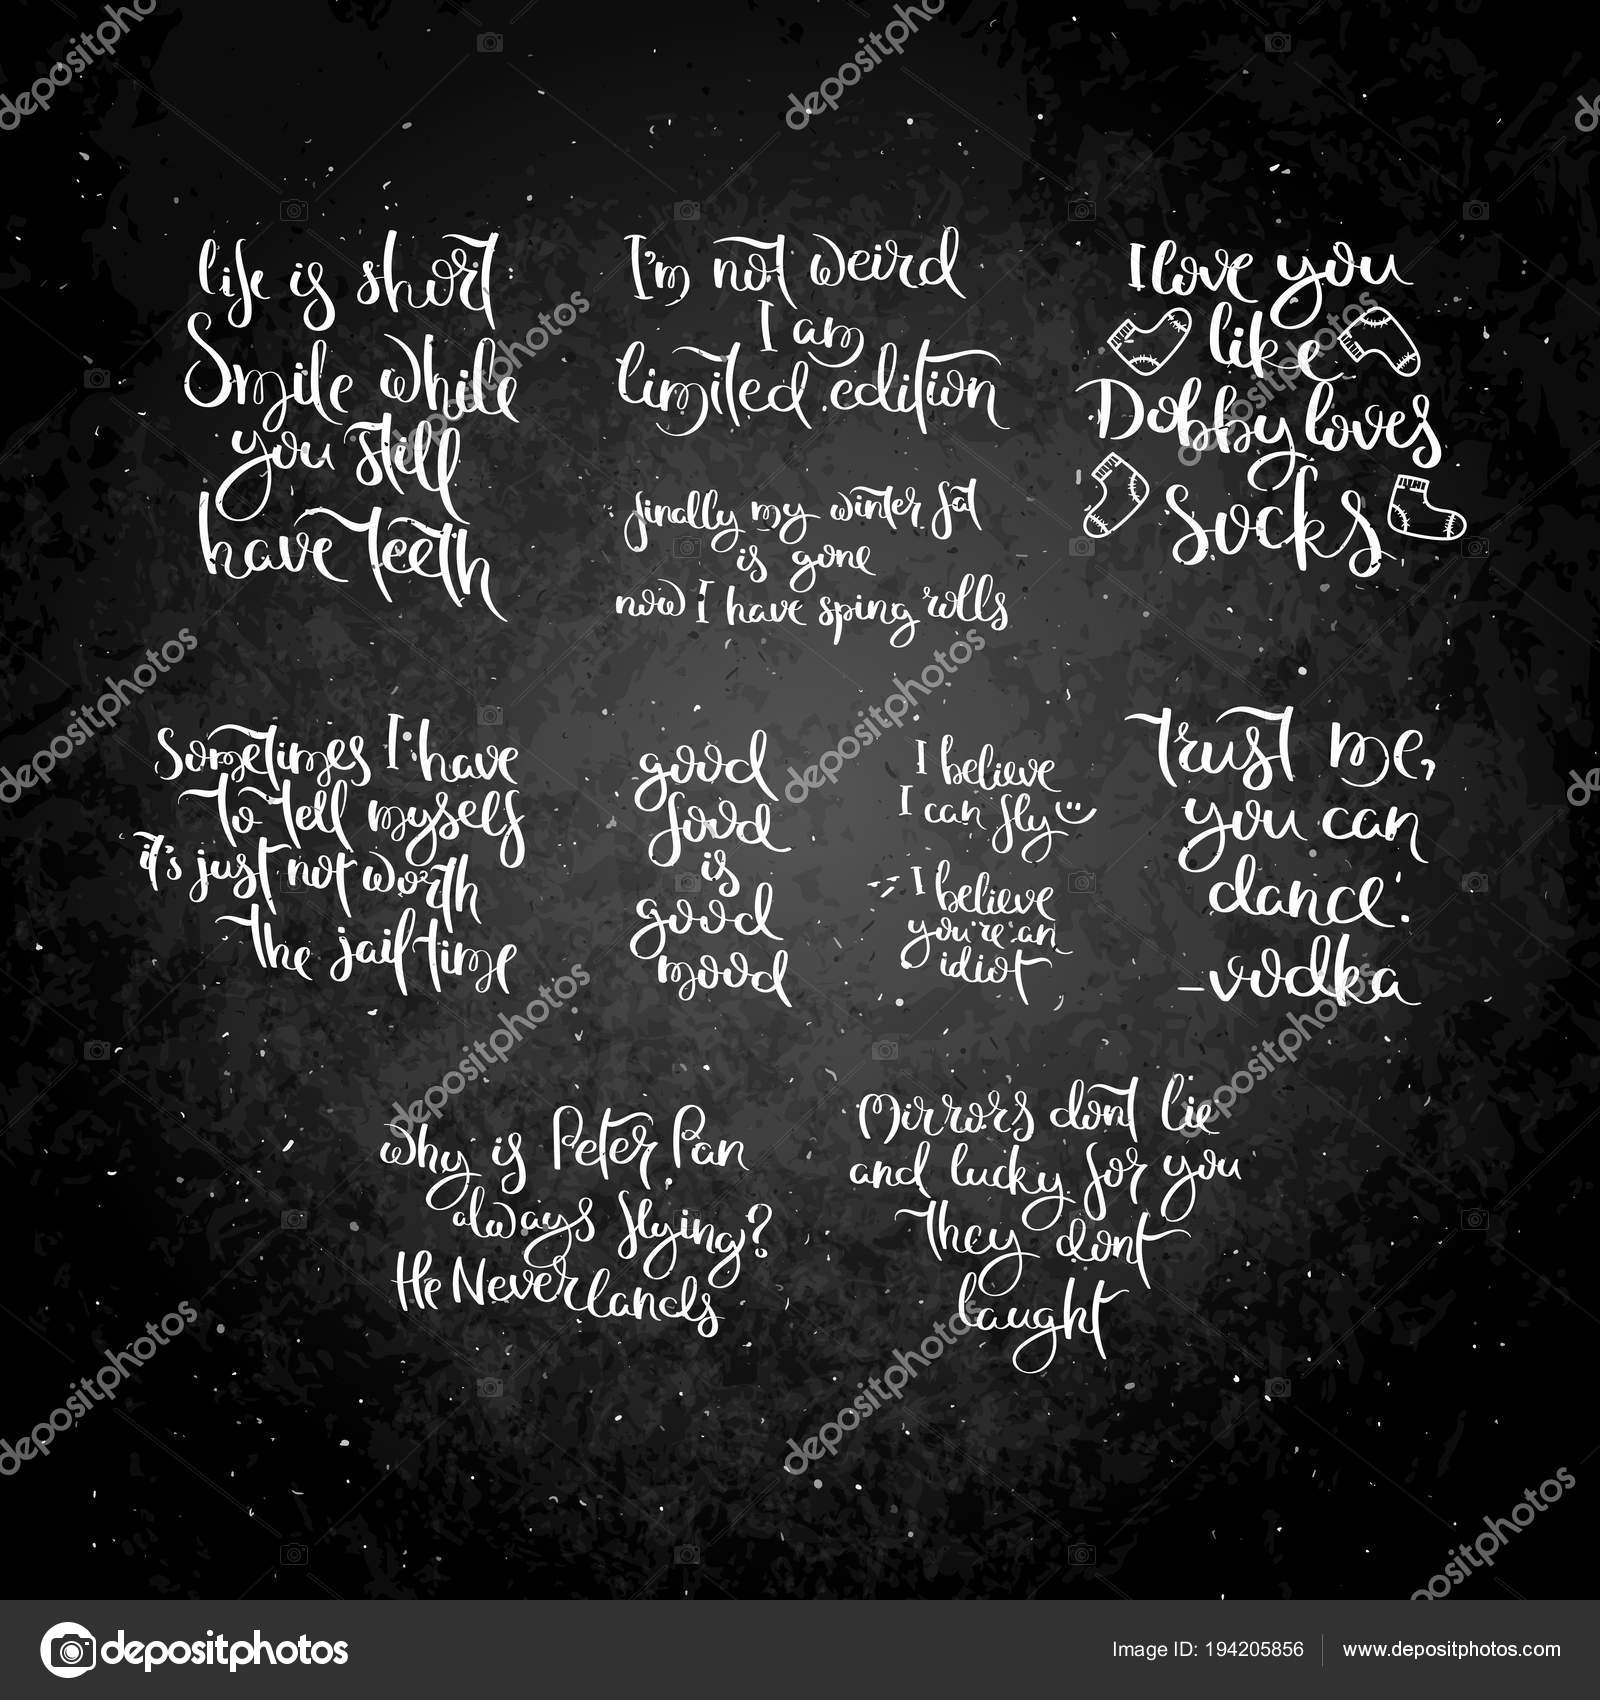 life is short
Smile while
you still
have teeth
I'm not weird
I am
limited edition
finally my winter fat
is gone
now I have sping rolls
I love you
like
Dobby loves
socks
Sometimes I have
to tell myself
it's just not worth
the jail time
good
food
is
good
mood
I believe
I can fly
I believe
you're an
idiot
trust me,
you can
dance.
-vodka
Why is Peter Pan
always flying?
He Neverlands
Mirrors dont lie
and lucky for you
they dont
laught
depositphotos
Image ID: 194205856
www.depositphotos.com